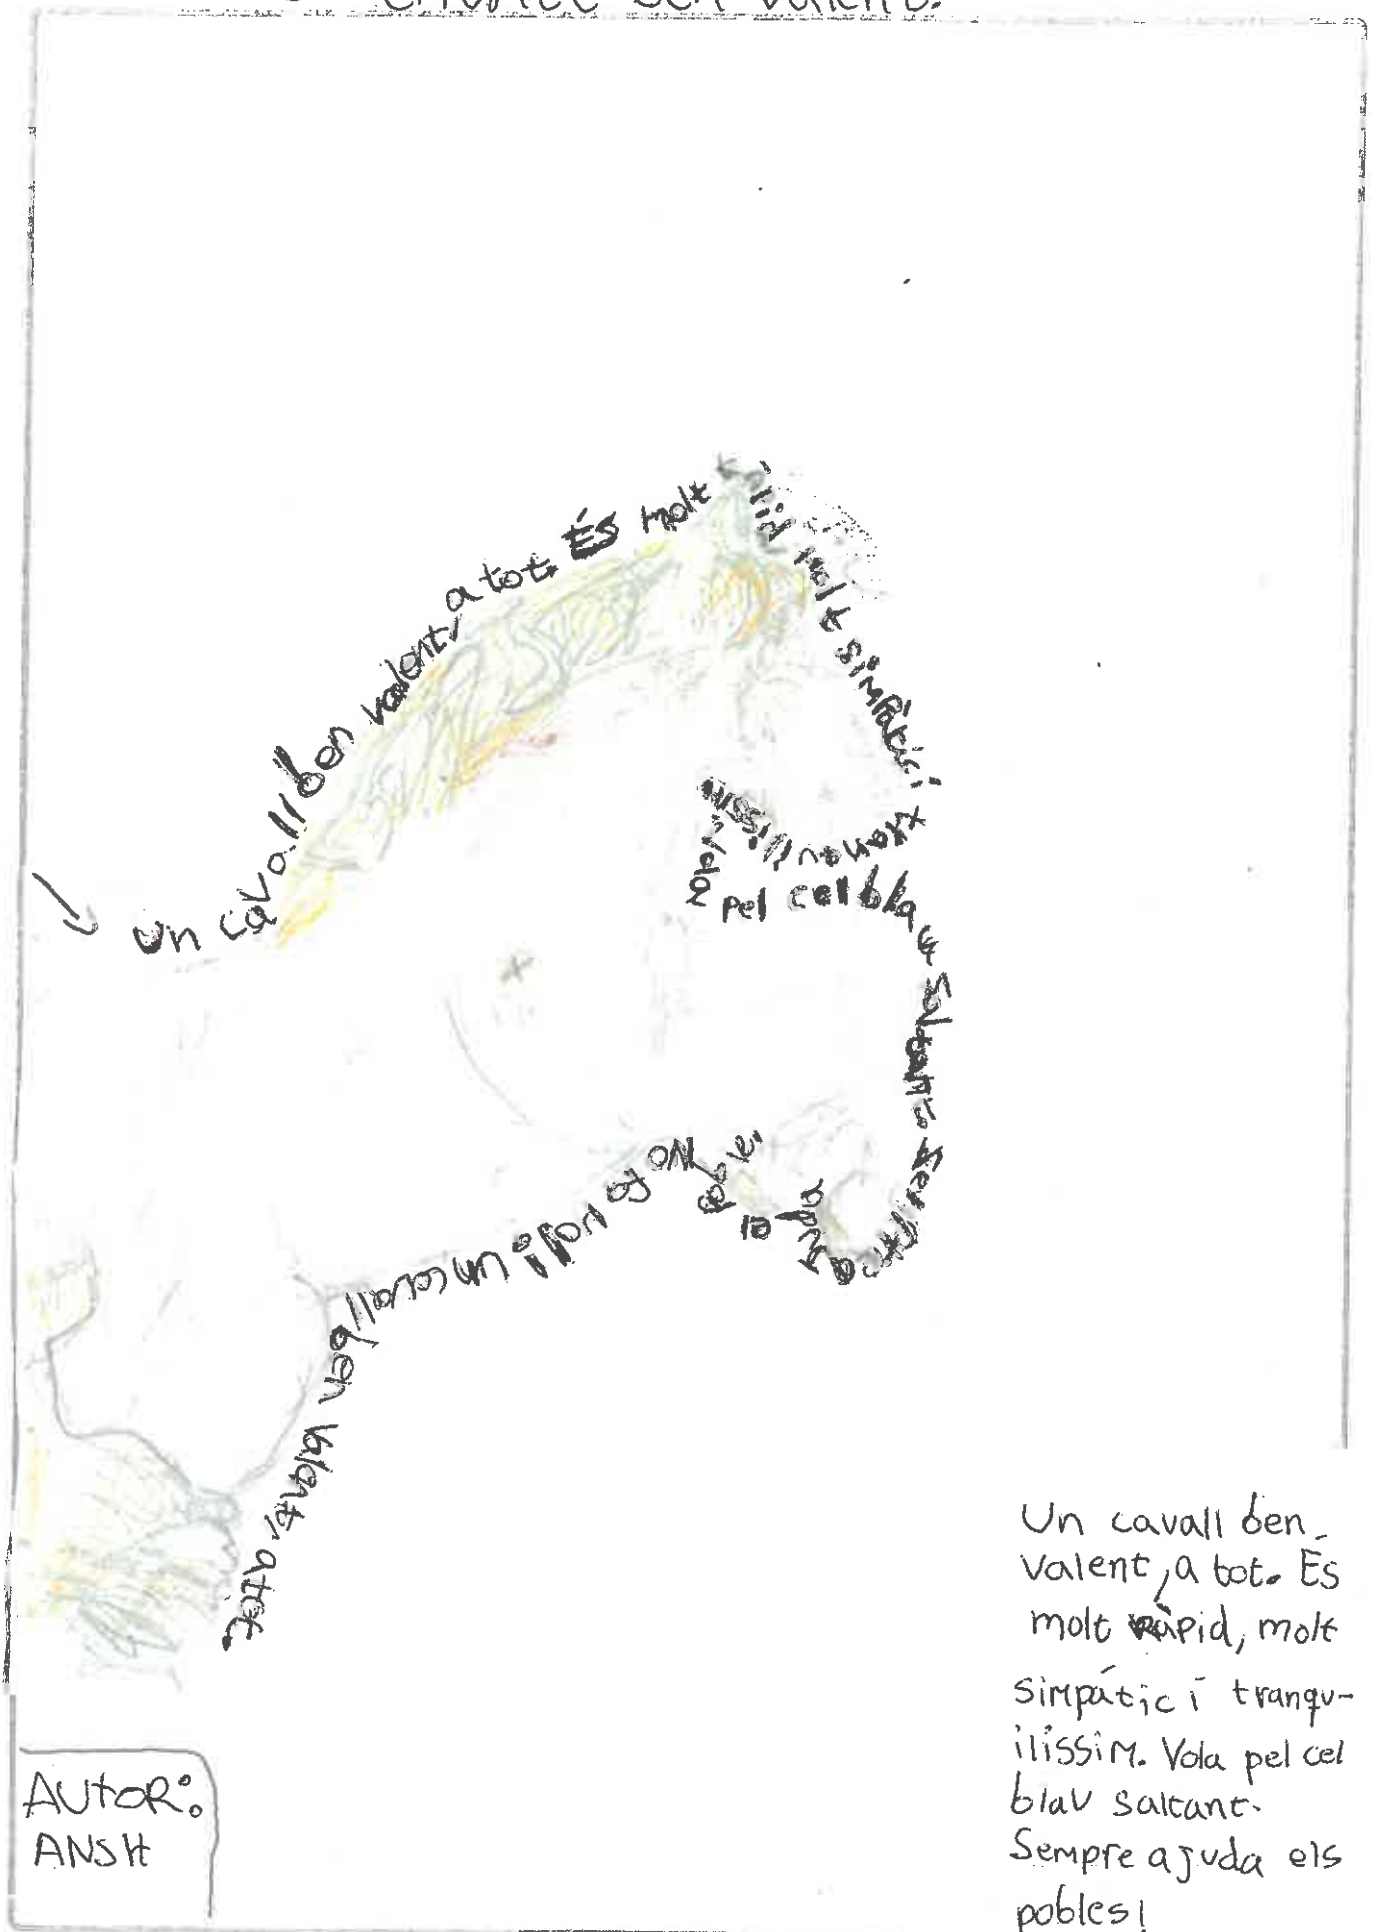 ben valent.
Un cavall ben valent, a tot. És molt
ràpid molt simpàtic i
tranquilissim
Vola
pel cel blau saltant. Sempre
ajuda
el poble!
No fa mal i un cavall
ben valent, a tot.
Un cavall ben
valent, a tot. És
molt ràpid, molt
simpátic i tranqu-
ilissim. Vola pel cel
blau saltant.
Sempre ajuda els
pobles!
AUTOR:
ANSH